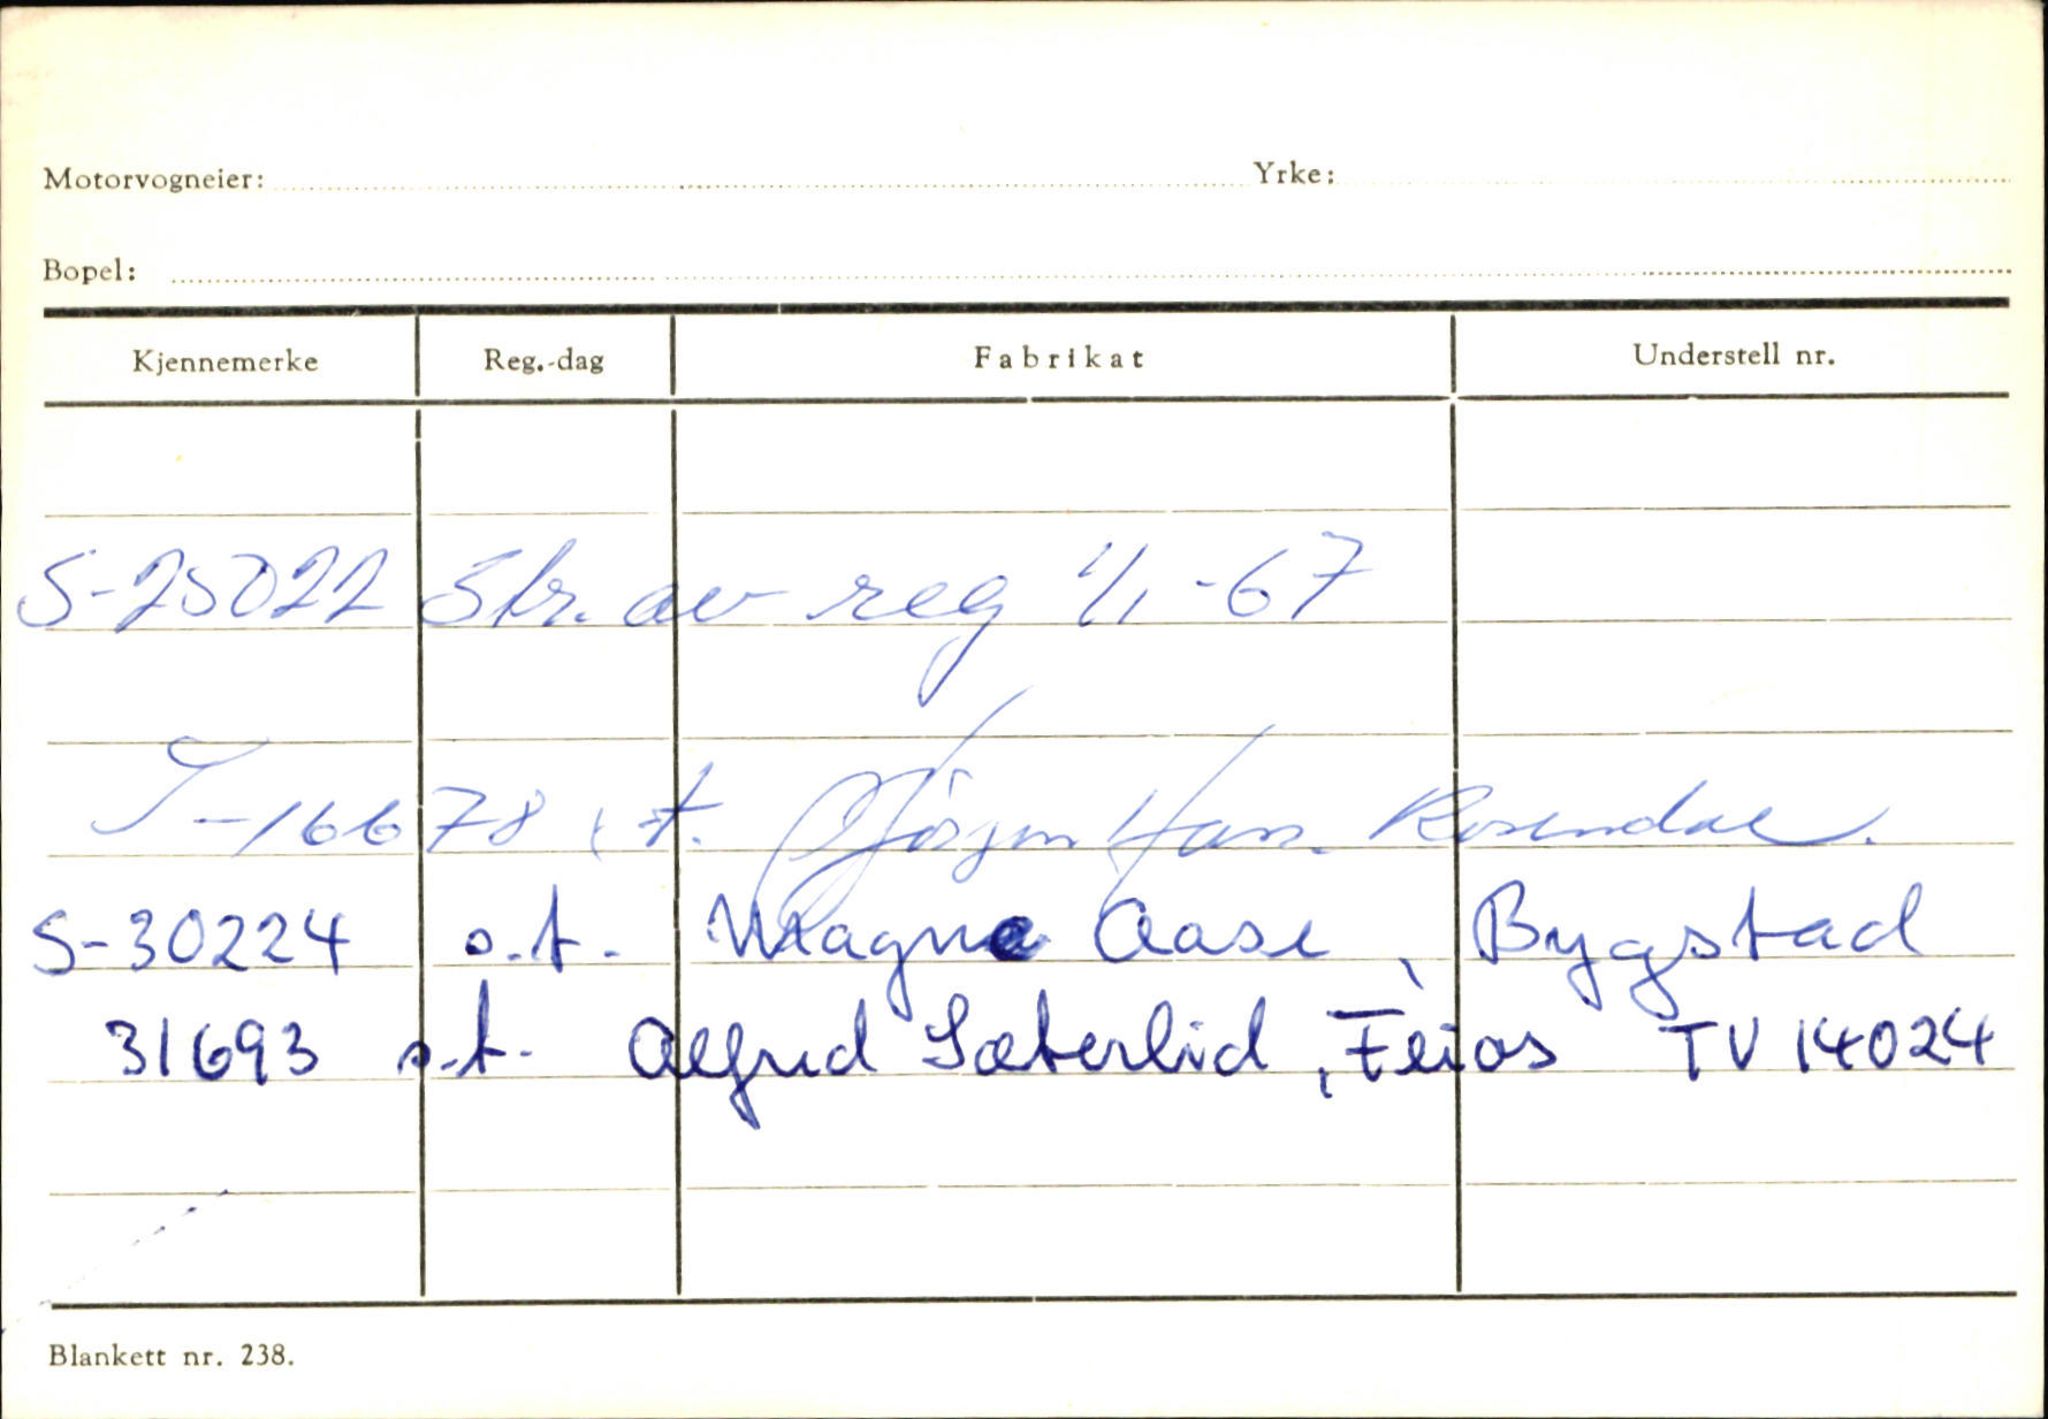 Motorvogneier: Yrke:
Bopel:
Kjennemerke Reg.-dag Fabrikat Understell nr.
S-25022 Str. av reg 1/1-67
T-16678 s.t. Jørgen Hans. Rosendal.
S-30224 s.t. Magne Aase, Bygstad
31693 s.t. Alfred Sæterlid, Feios TV 14024
Blankett nr. 238.